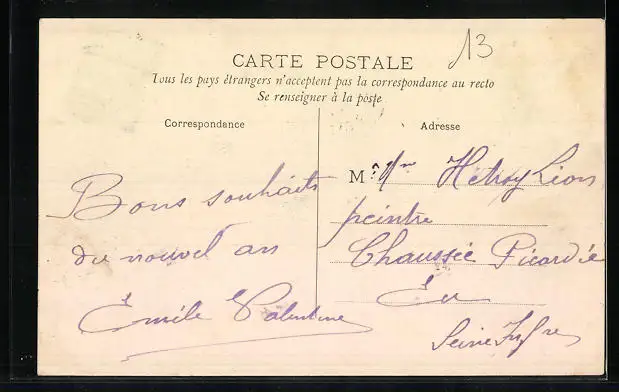 13
CARTE POSTALE
Tous les pays étrangers n'acceptent pas la correspondance au recto
Se renseigner à la poste
Correspondance
Adresse
Bons souhaits
du nouvel an
Emile Valentine
M Hétroy Léon
peintre
Chaussée Picardie
Eu
Seine Infre